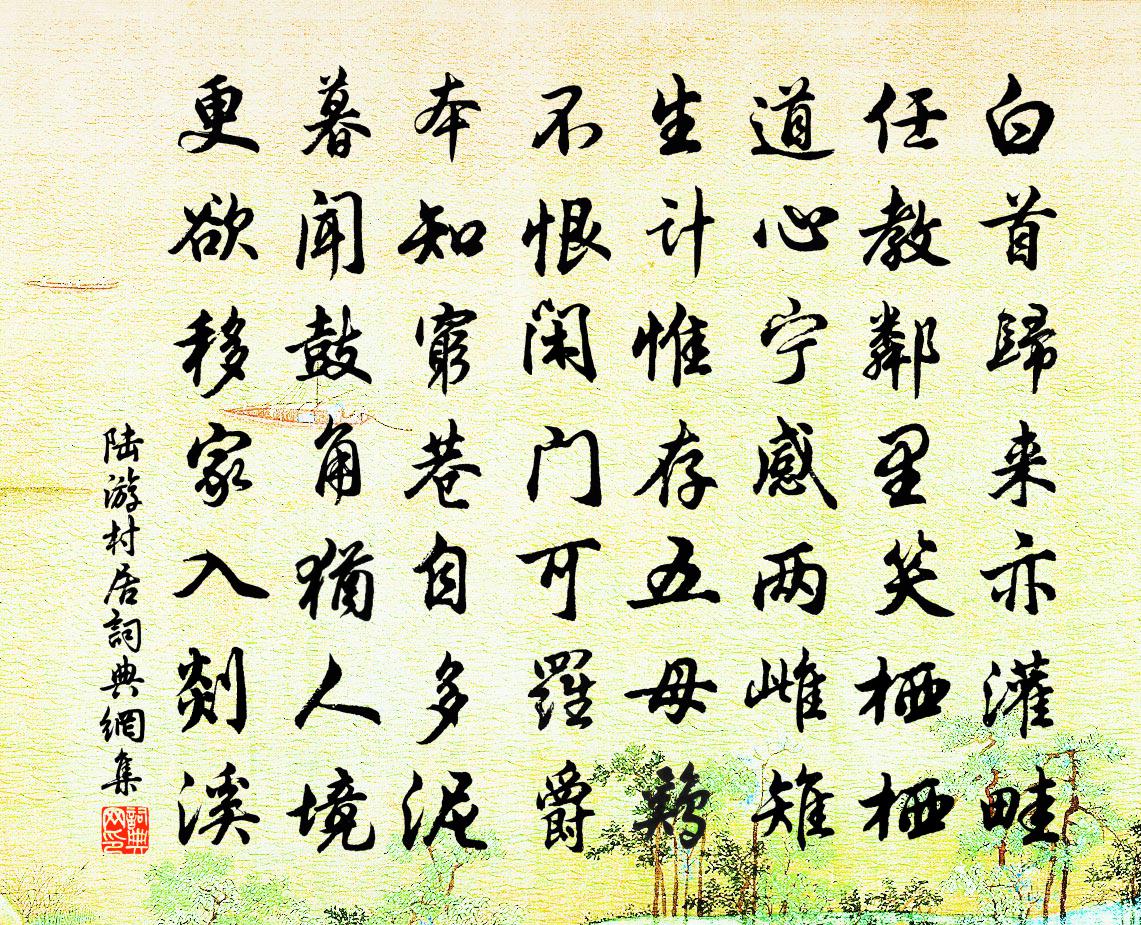 白首歸来亦灌畦
任教鄰里笑栖栖
道心宁感两雌雉
生计惟存五母鷄
不恨闲门可羅爵
本知窮巷自多泥
暮闻鼓角猶人境
更欲移家入剡溪
陆游村居詞典網集
詞典
网印